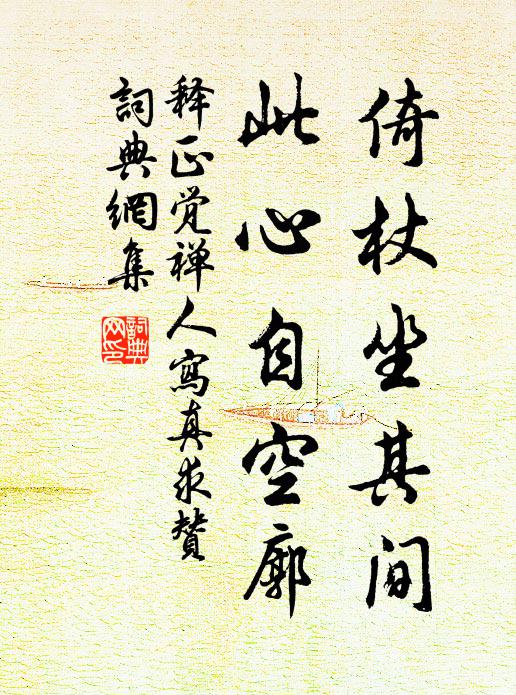 倚杖坐其间
此心自空廓
释正觉禅人寫真求賛
詞典網集
詞典
网印